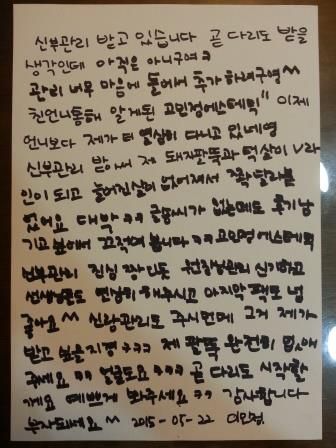 신부관리 받고 있습니다 곧 다리도 받을
생각인데 아직은 아니구여ㅋ
관리 너무 마음에 들어서 추가하려구영^^
친언니통해 알게된 고민정에스테틱" 이제
언니보다 제가 더 열심히 다니고 있네영
신부관리 받아써 제 돼지팔뚝과 턱살이 V라
인이 되고 늘어진살이 없어져서 쫙 달라붙
었어요 대박 ㅋㅋ 글씨가 없는데도 후기남
기고 싶에서 끄적여 봅니다 ㅋㅋ 고민정에스테틱
신부관리 진심 짱이듯 신기하고
선생님들도 열심히 해주시고 아지막 팩도 넘
좋아요^^ 신랑관리도 주시던데 그거 제가
받고 싶은지경 ㅋㅋㅋ 제 팔뚝 완전히 없애
주세요 ㅋㅋ 얼굴도요 ㅋㅋㅋ 곧 다리도 시작할
께요 예쁘게 봐주세요ㅋㅋ 감사합니다
부자되세요 ^^ 2015-05-22 이모정